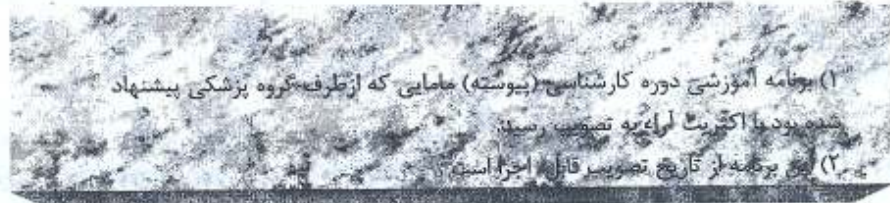 ۱) برنامه آموزشی دوره کارشناسی (پیوسته) مامایی که ازطرف گروه پزشکی پیشنهاد
شده بود با اکثریت آراء به تصویب رسید.
۲) این برنامه از تاریخ تصویب قابل اجرا است.